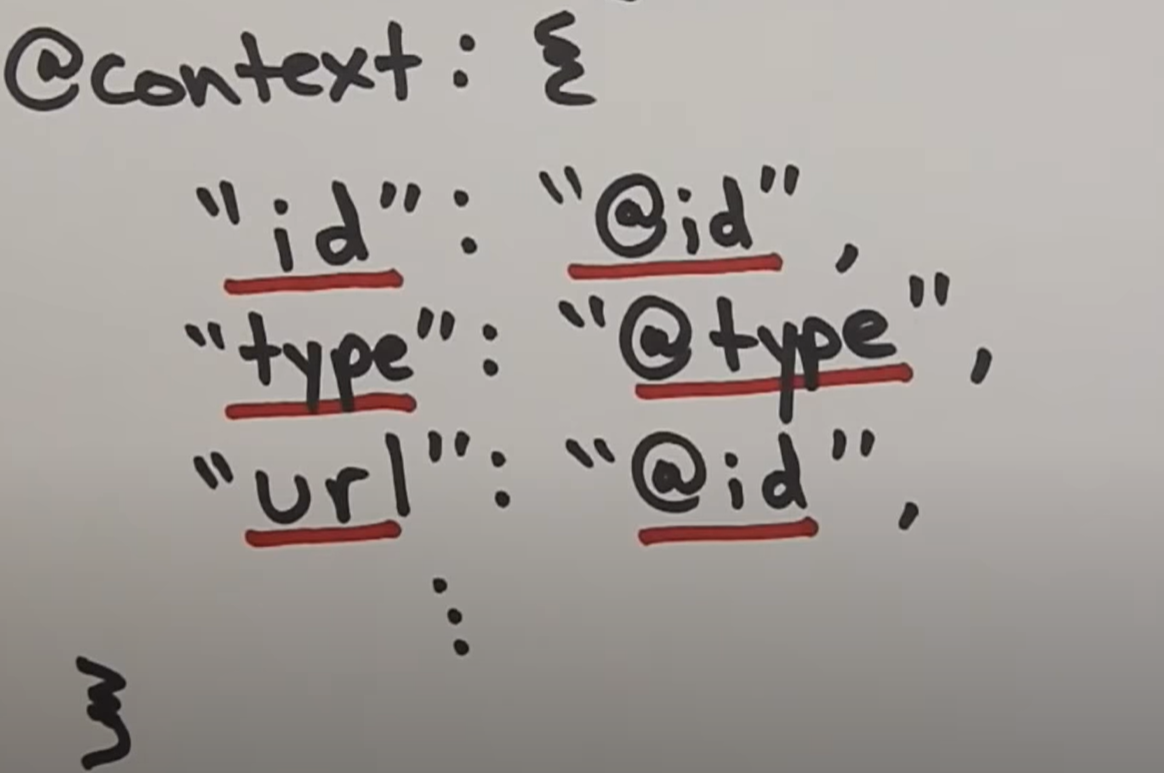 @context: {
"id": "@id",
"type": "@type",
"url": "@id",
⋮
}